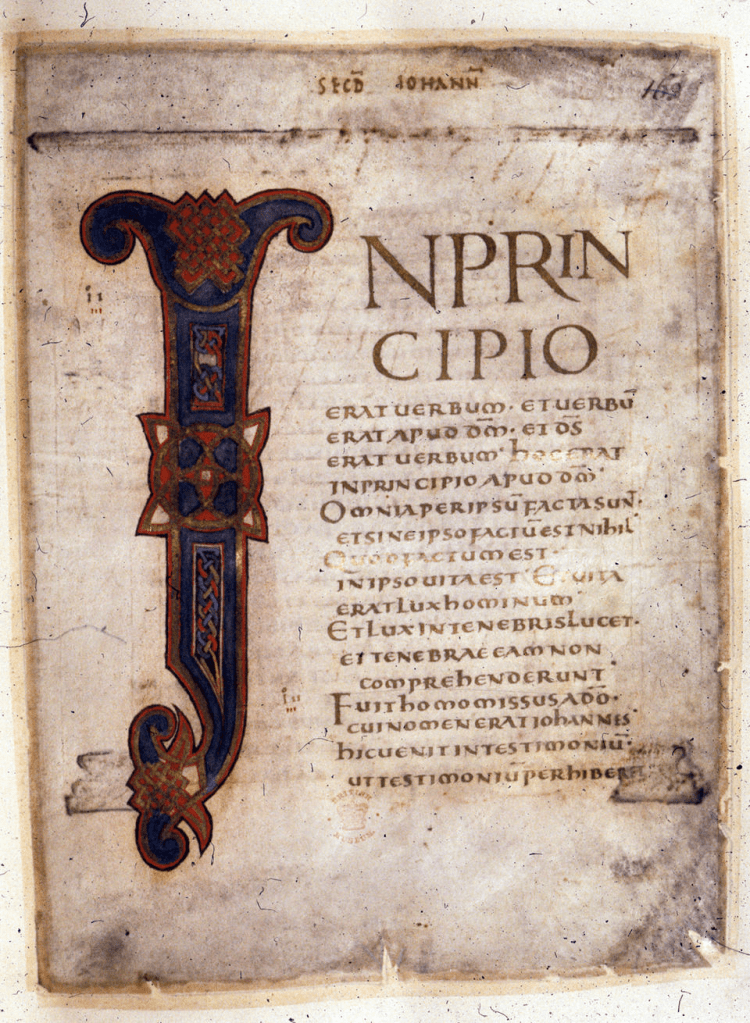 SECD̄ IOHANN̄
162
INPRIN
CIPIO
ERAT UERBUM· ET UERBŪ
ERAT APUD DM̄· ET DS̄
ERAT UERBUM· hOC ERAT
IN PRINCIPIO APUD DM̄
OMNIA PER IPSŪ FACTA SUN̄·
ET SINE IPSO FACTŪ EST NIhIL
QUOD FACTUM EST·
IN IPSO UITA EST ET UITA
ERAT LUX hOMINUM
ET LUX IN TENEBRIS LUCET·
ET TENEBRAE EAM NON
COMPREhENDERUNT
FUIT hOMO MISSUS A DŌ·
CUI NOMEN ERAT IOhANNES
hIC UENIT IN TESTIMONIŪ·
UT TESTIMONIŪ PERhIBER
BRITISH
MUSEUM